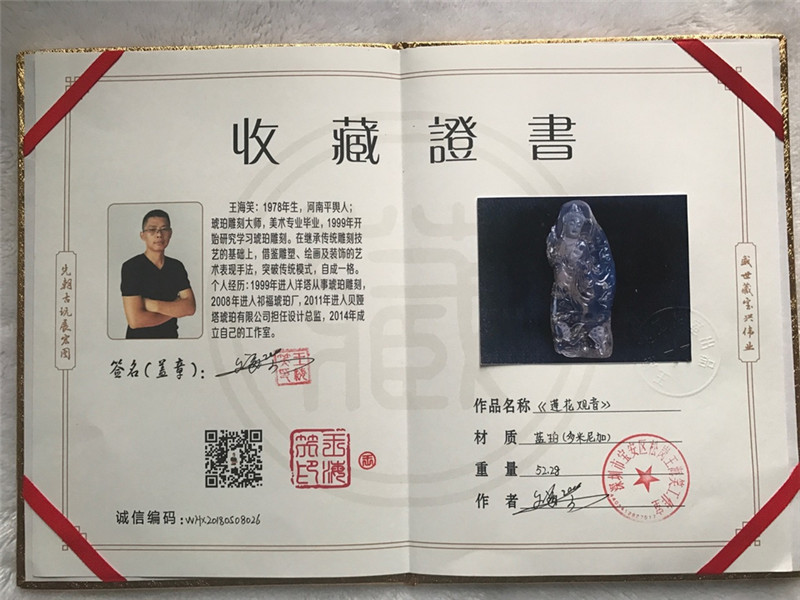 收藏證書
王海笑：1978年生，河南平舆人；
琥珀雕刻大师，美术专业毕业，1999年开
始研究学习琥珀雕刻。在继承传统雕刻技
艺的基础上，借鉴雕塑、绘画及装饰的艺
术表现手法，突破传统模式，自成一格。
个人经历：1999年进入洋塔从事琥珀雕刻，
2008年进入祁福琥珀厂，2011年进入贝娅
塔琥珀有限公司担任设计总监，2014年成
立自己的工作室。
签名(盖章)：
诚信编码：WHX20180508026
先朝古玩展宏图
藏
作品名称《莲花观音》
材质 蓝珀(多米尼加)
重量 52.28
作者
深圳市宝安区松岗王海笑工作室
盛世藏宝兴伟业